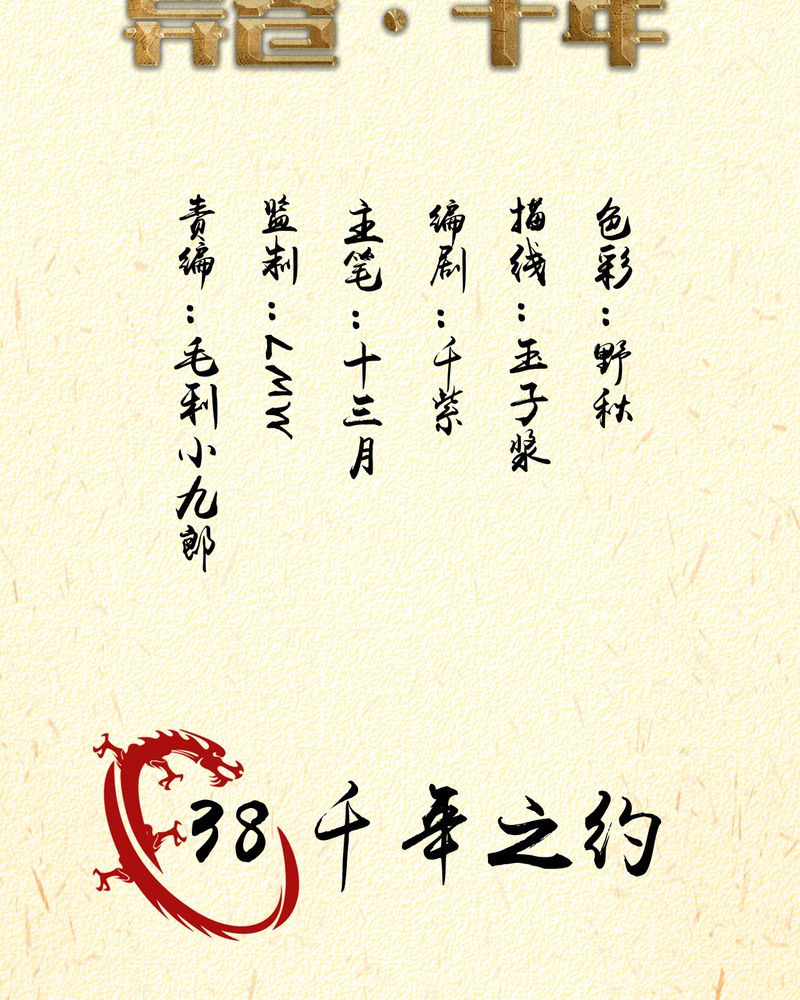 ·千年
色彩：野秋
描线：玉子浆
编剧：千紫
主笔：十三月
监制：
责编：毛利小九郎
38 千年之约